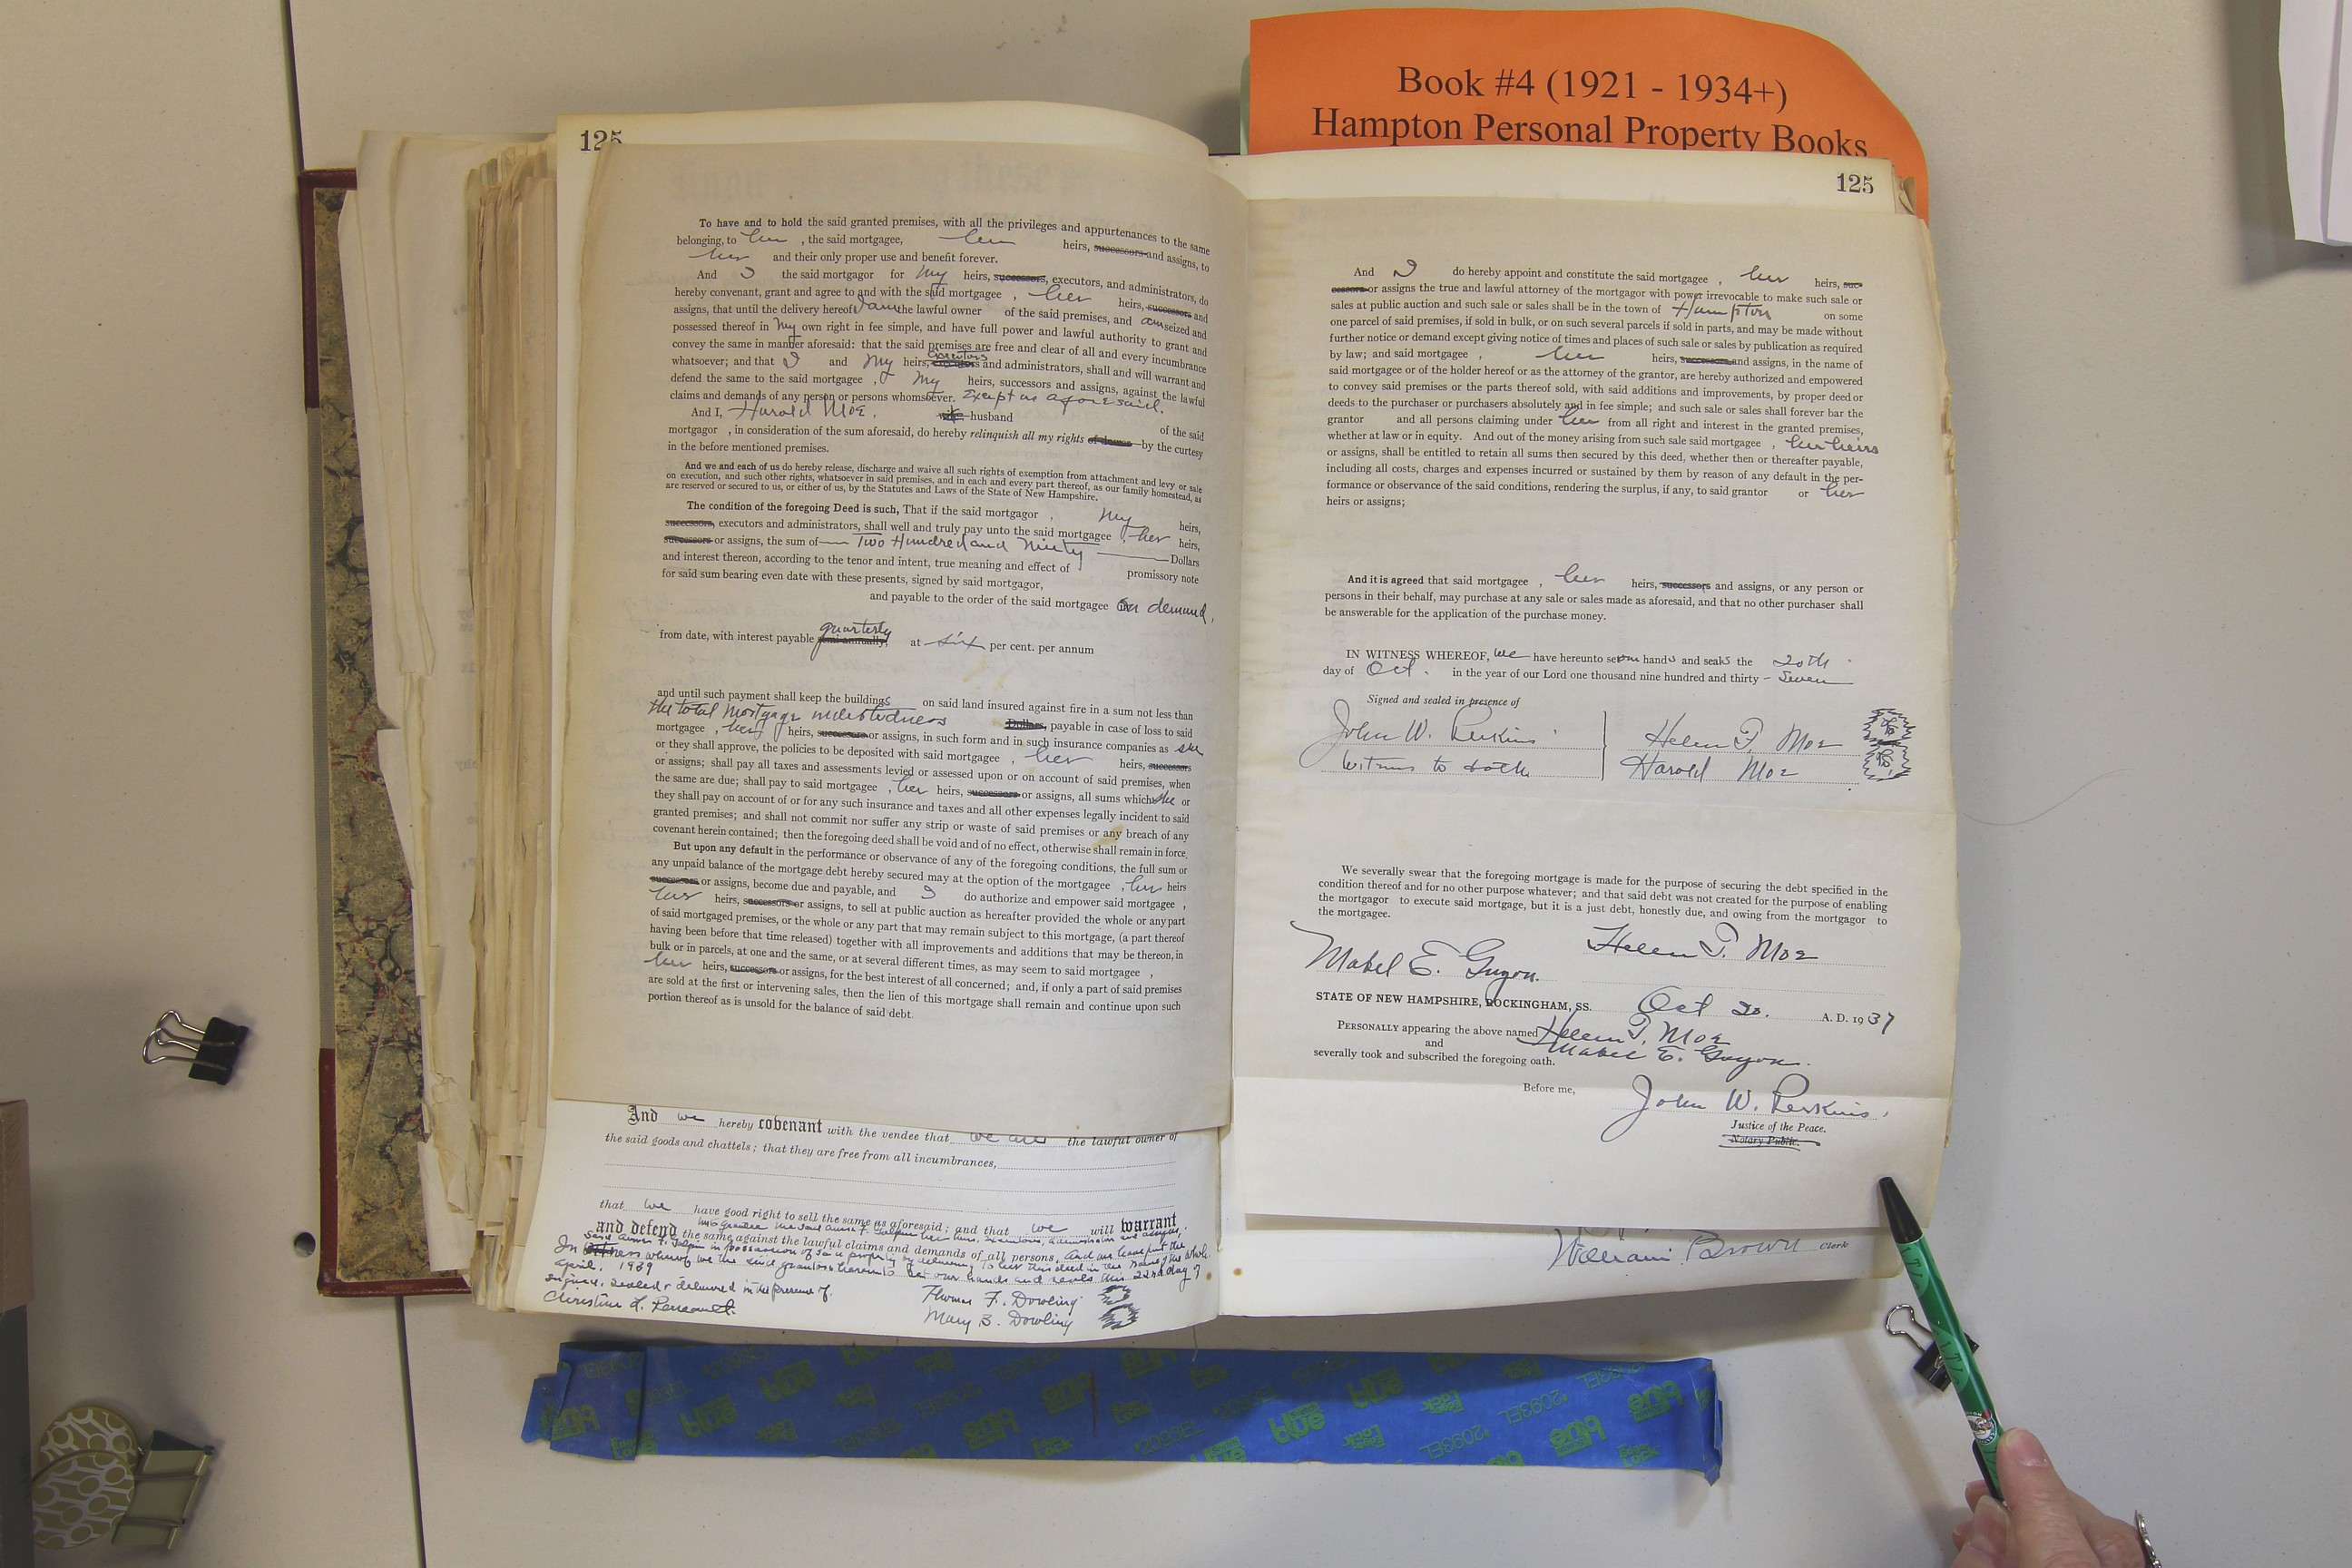 Book #4 (1921 - 1934+)
Hampton Personal Property Books
125
To have and to hold the said granted premises, with all the privileges and appurtenances to the same
belonging, to her , the said mortgagee, her heirs, successors and assigns, to
her and their only proper use and benefit forever.
And I the said mortgagor for my heirs, successors, executors, and administrators, do
hereby convenant, grant and agree to and with the said mortgagee , her heirs, successors and
assigns, that until the delivery hereof I am the lawful owner of the said premises, and am seized and
possessed thereof in my own right in fee simple, and have full power and lawful authority to grant and
convey the same in manner aforesaid: that the said premises are free and clear of all and every incumbrance
whatsoever; and that I and my heirs, executors and administrators, shall and will warrant and
defend the same to the said mortgagee , my heirs, successors and assigns, against the lawful
claims and demands of any person or persons whomsoever. Except as aforesaid.
And I, Harold Moe, wife husband of the said
mortgagor , in consideration of the sum aforesaid, do hereby relinquish all my rights of dower by the curtesy
in the before mentioned premises.
And we and each of us do hereby release, discharge and waive all such rights of exemption from attachment and levy or sale
on execution, and such other rights, whatsoever in said premises, and in each and every part thereof, as our family homestead, as
are reserved or secured to us, or either of us, by the Statutes and Laws of the State of New Hampshire.
The condition of the foregoing Deed is such, That if the said mortgagor , my heirs,
successors, executors and administrators, shall well and truly pay unto the said mortgagee , her heirs,
successors or assigns, the sum of Two Hundred and Ninety Dollars
and interest thereon, according to the tenor and intent, true meaning and effect of 1 promissory note
for said sum bearing even date with these presents, signed by said mortgagor,
and payable to the order of the said mortgagee on demand,
from date, with interest payable quarterly semi-annually, at six per cent. per annum
and until such payment shall keep the buildings on said land insured against fire in a sum not less than
the total mortgage indebtedness Dollars, payable in case of loss to said
mortgagee , her heirs, successors or assigns, in such form and in such insurance companies as she
or they shall approve, the policies to be deposited with said mortgagee , her heirs, successors
or assigns; shall pay all taxes and assessments levied or assessed upon or on account of said premises, when
the same are due; shall pay to said mortgagee , her heirs, successors or assigns, all sums which she or
they shall pay on account of or for any such insurance and taxes and all other expenses legally incident to said
granted premises; and shall not commit nor suffer any strip or waste of said premises or any breach of any
covenant herein contained; then the foregoing deed shall be void and of no effect, otherwise shall remain in force,
But upon any default in the performance or observance of any of the foregoing conditions, the full sum or
any unpaid balance of the mortgage debt hereby secured may at the option of the mortgagee , her heirs
successors or assigns, become due and payable, and I do authorize and empower said mortgagee ,
her heirs, successors or assigns, to sell at public auction as hereafter provided the whole or any part
of said mortgaged premises, or the whole or any part that may remain subject to this mortgage, (a part thereof
having been before that time released) together with all improvements and additions that may be thereon, in
bulk or in parcels, at one and the same, or at several different times, as may seem to said mortgagee ,
her heirs, successors or assigns, for the best interest of all concerned; and, if only a part of said premises
are sold at the first or intervening sales, then the lien of this mortgage shall remain and continue upon such
portion thereof as is unsold for the balance of said debt.
And we hereby covenant with the vendee that we are the lawful owner of
the said goods and chattels; that they are free from all incumbrances,
that we have good right to sell the same as aforesaid; and that we will warrant
and defend the same against the lawful claims and demands of all persons. And we have put the
said Anna F. in possession of said property by delivering to her this deed in the name of the whole.
In witness whereof we the said grantors hereunto set our hands and seals this 22nd day of
April, 1939
signed, sealed & delivered in the presence of.
Christine L.
Thomas F. Dowling
Mary B. Dowling
125
And I do hereby appoint and constitute the said mortgagee , her heirs, suc-
cessors or assigns the true and lawful attorney of the mortgagor with power irrevocable to make such sale or
sales at public auction and such sale or sales shall be in the town of Hampton on some
one parcel of said premises, if sold in bulk, or on such several parcels if sold in parts, and may be made without
further notice or demand except giving notice of times and places of such sale or sales by publication as required
by law; and said mortgagee , her heirs, successors and assigns, in the name of
said mortgagee or of the holder hereof or as the attorney of the grantor, are hereby authorized and empowered
to convey said premises or the parts thereof sold, with said additions and improvements, by proper deed or
deeds to the purchaser or purchasers absolutely and in fee simple; and such sale or sales shall forever bar the
grantor and all persons claiming under her from all right and interest in the granted premises,
whether at law or in equity. And out of the money arising from such sale said mortgagee , her heirs
or assigns, shall be entitled to retain all sums then secured by this deed, whether then or thereafter payable,
including all costs, charges and expenses incurred or sustained by them by reason of any default in the per-
formance or observance of the said conditions, rendering the surplus, if any, to said grantor or her
heirs or assigns;
And it is agreed that said mortgagee , her heirs, successors and assigns, or any person or
persons in their behalf, may purchase at any sale or sales made as aforesaid, and that no other purchaser shall
be answerable for the application of the purchase money.
IN WITNESS WHEREOF, we have hereunto set our hands and seals the 20th
day of Oct. in the year of our Lord one thousand nine hundred and thirty-seven
Signed and sealed in presence of
John W. Perkins
Witness to both
Helen T. Moe
Harold Moe
We severally swear that the foregoing mortgage is made for the purpose of securing the debt specified in the
condition thereof and for no other purpose whatever; and that said debt was not created for the purpose of enabling
the mortgagor to execute said mortgage, but it is a just debt, honestly due, and owing from the mortgagor to
the mortgagee.
Helen T. Moe
Mabel E. Guyon.
STATE OF NEW HAMPSHIRE, ROCKINGHAM, SS. Oct 20. A. D. 1937
PERSONALLY appearing the above named Helen T. Moe
and Mabel E. Guyon.
severally took and subscribed the foregoing oath.
Before me,
John W. Perkins,
Justice of the Peace.
Notary Public.
William Brown Clerk